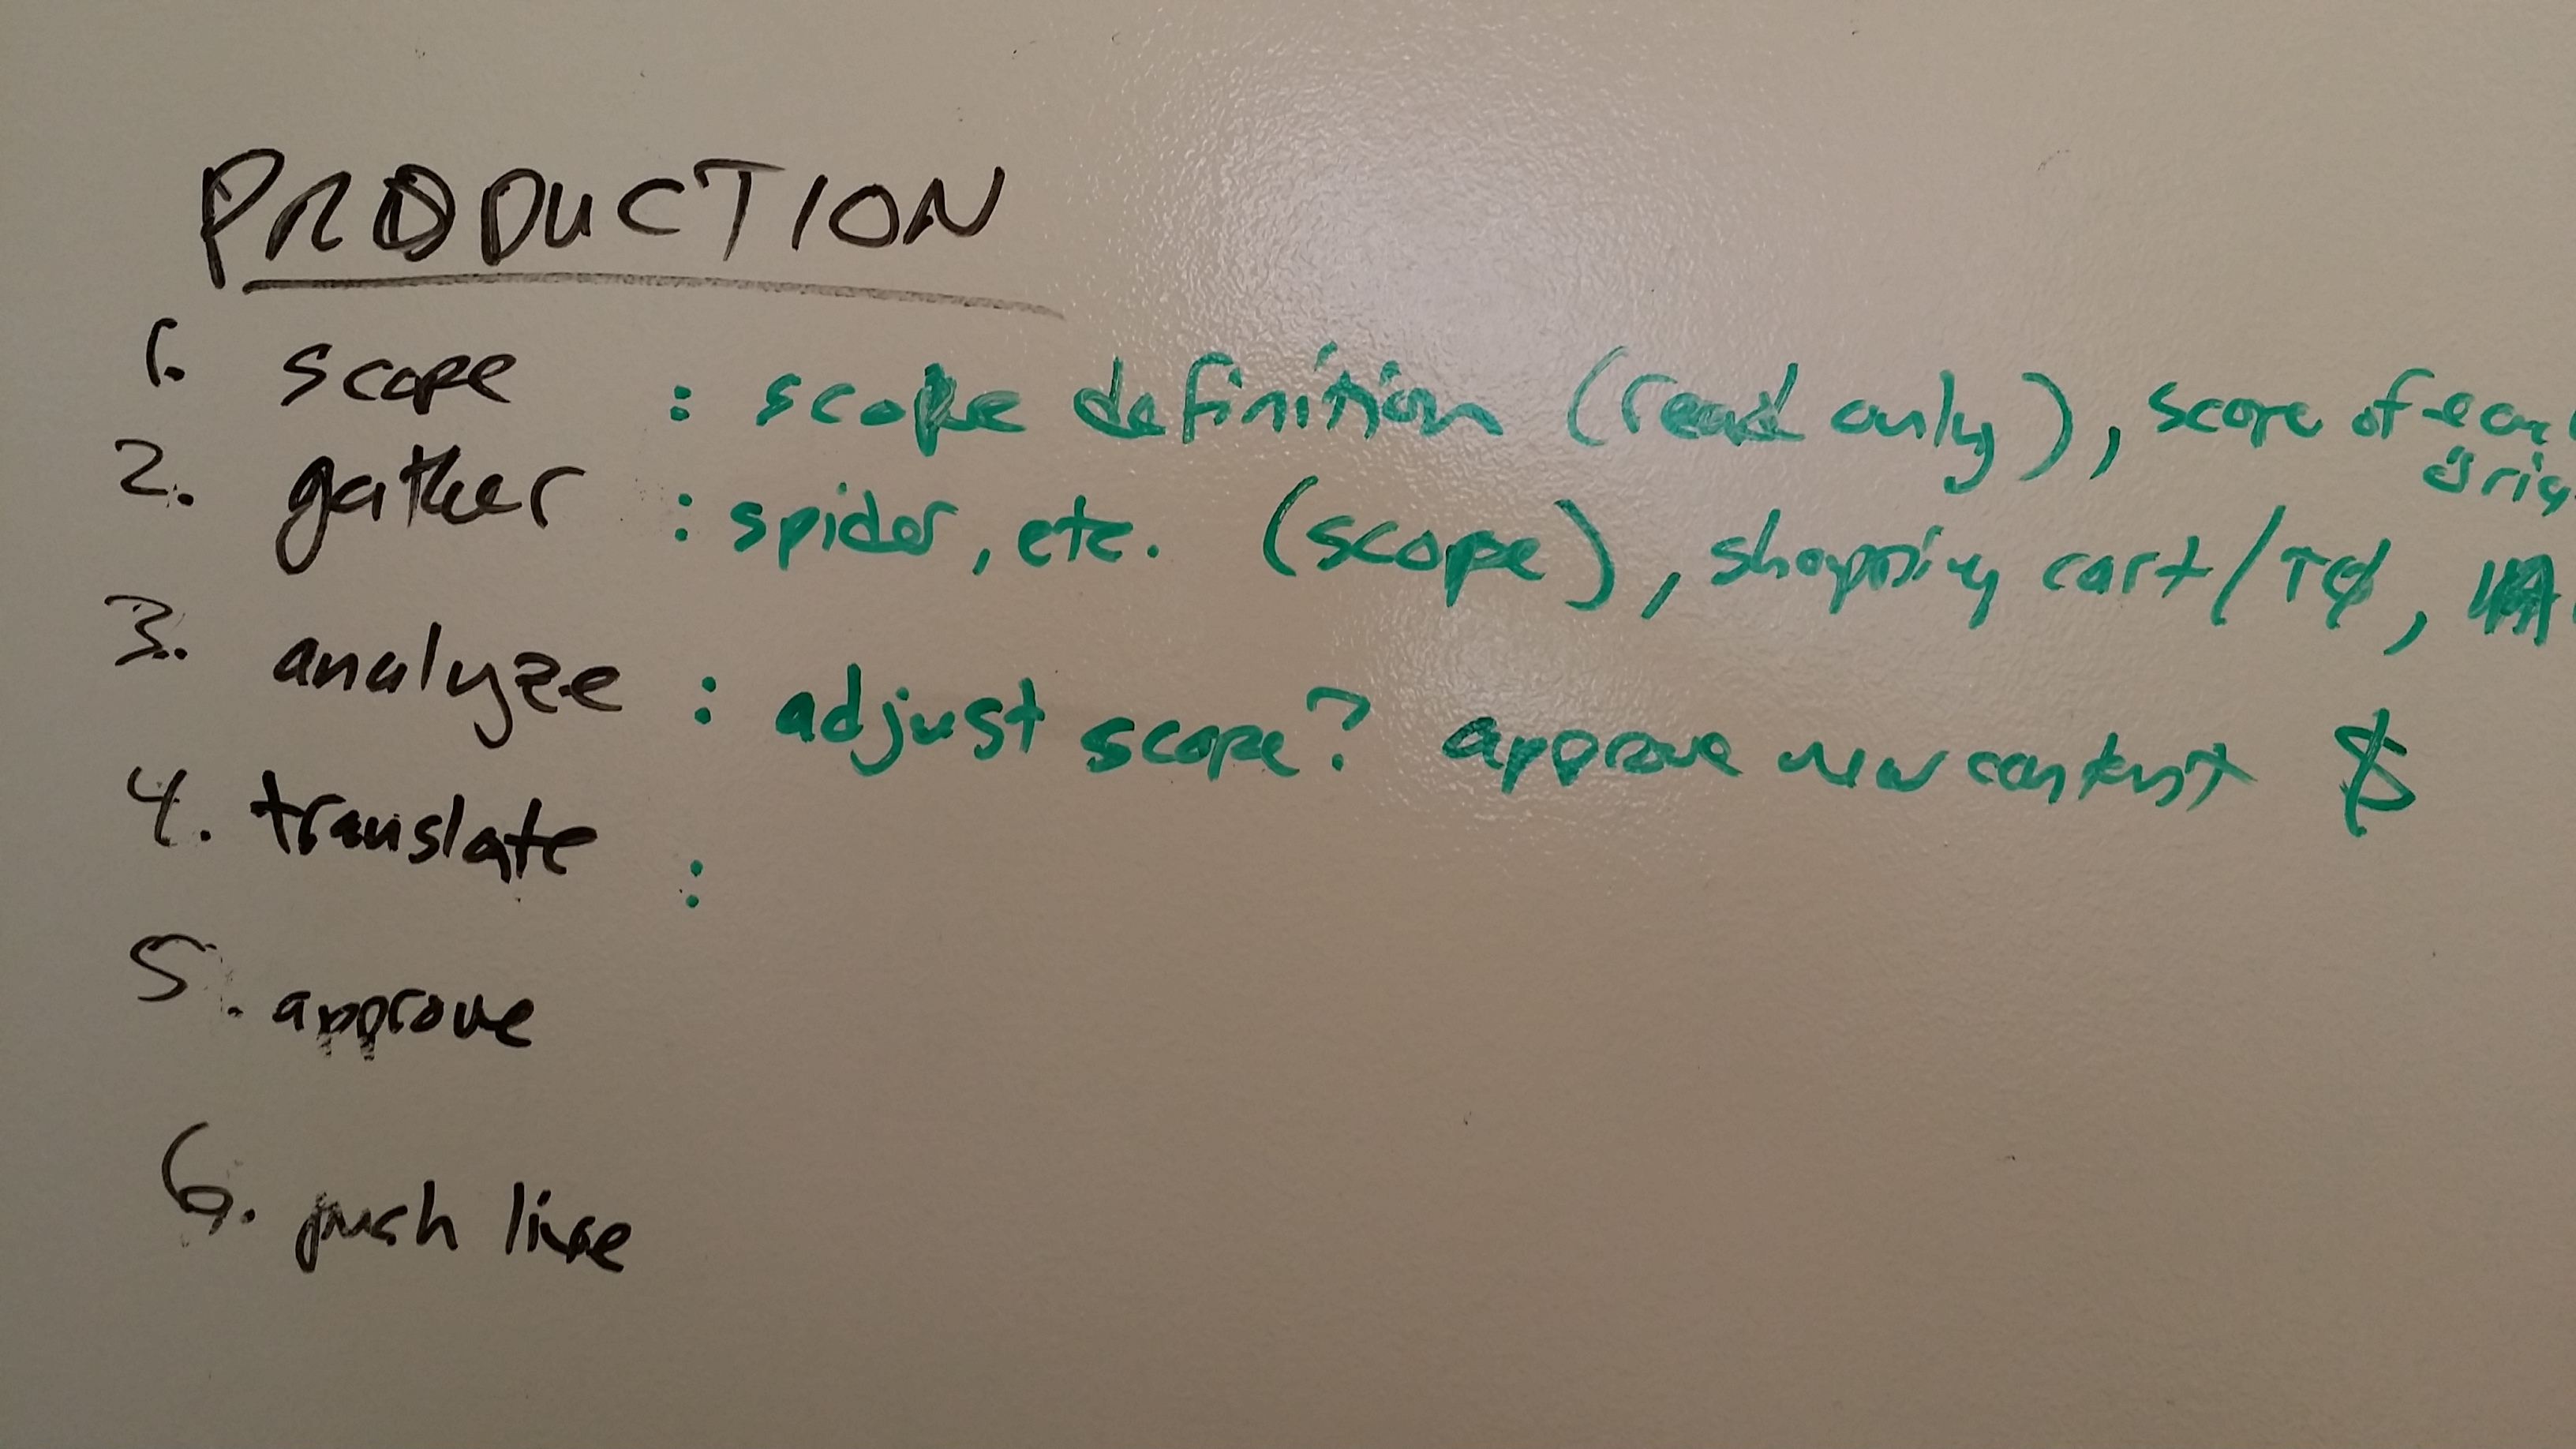 PRODUCTION
1. scope : scope definition (read only), scope of
2. gather : spider, etc. (scope), shopping cart/
3. analyze : adjust scope? approve new content $
4. translate :
5. approve
6. push live